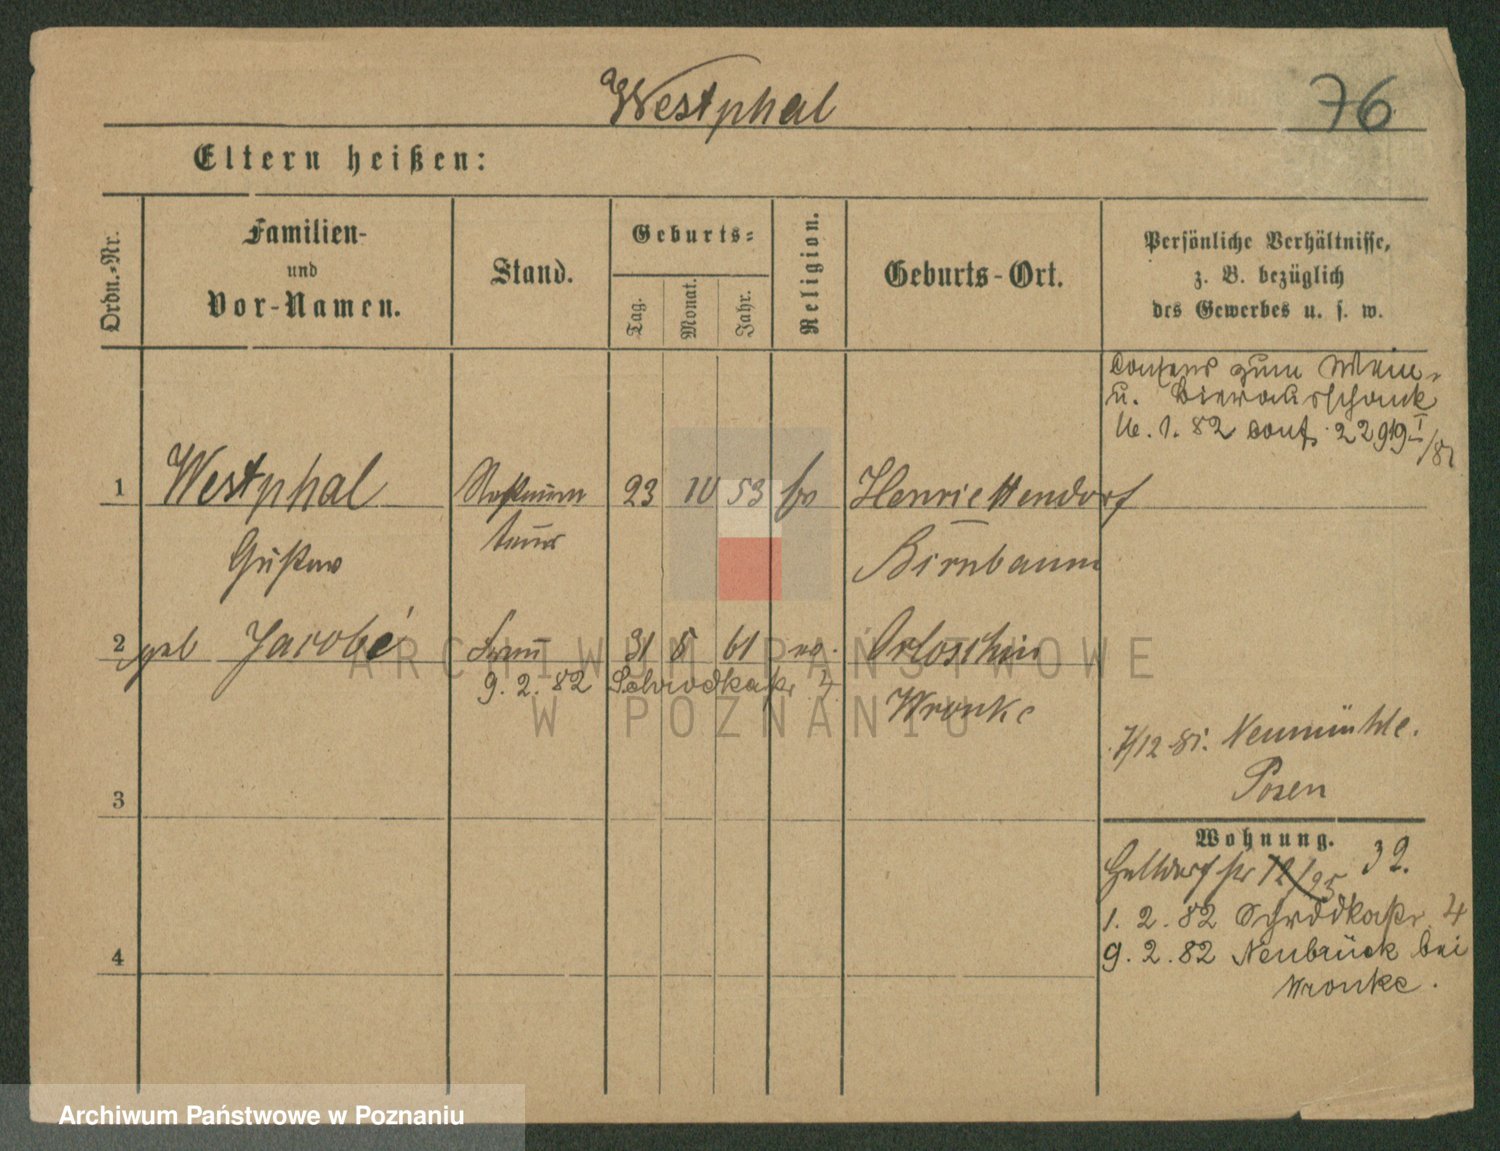 Westphal
76
Eltern heißen:
Ordn.-Nr.
Familien-
und
Vor-Namen.
Stand.
Geburts-
Tag.
Monat.
Jahr.
Religion.
Geburts-Ort.
Persönliche Verhältnisse,
z. B. bezüglich
des Gewerbes u. s. w.
Consens zum Wein-
u. Bierausschank
1. 82 22919 I/81
1 Westphal 23 10 53 Henriettendorf
Gustav
Birnbaum
2 geb Jacobé Frau 31 8 61 Orloschin
9. 2. 82 Schrodkastr 4
Wronke
7/12 81. Neumühle.
Posen
3
Wohnung.
Halbdorfstr 12/ 32.
1. 2. 82 Schrodkastr. 4
9. 2. 82 Neubrück bei
Wronke.
4
ARCHIWUM PAŃSTWOWE
W POZNANIU
Archiwum Państwowe w Poznaniu